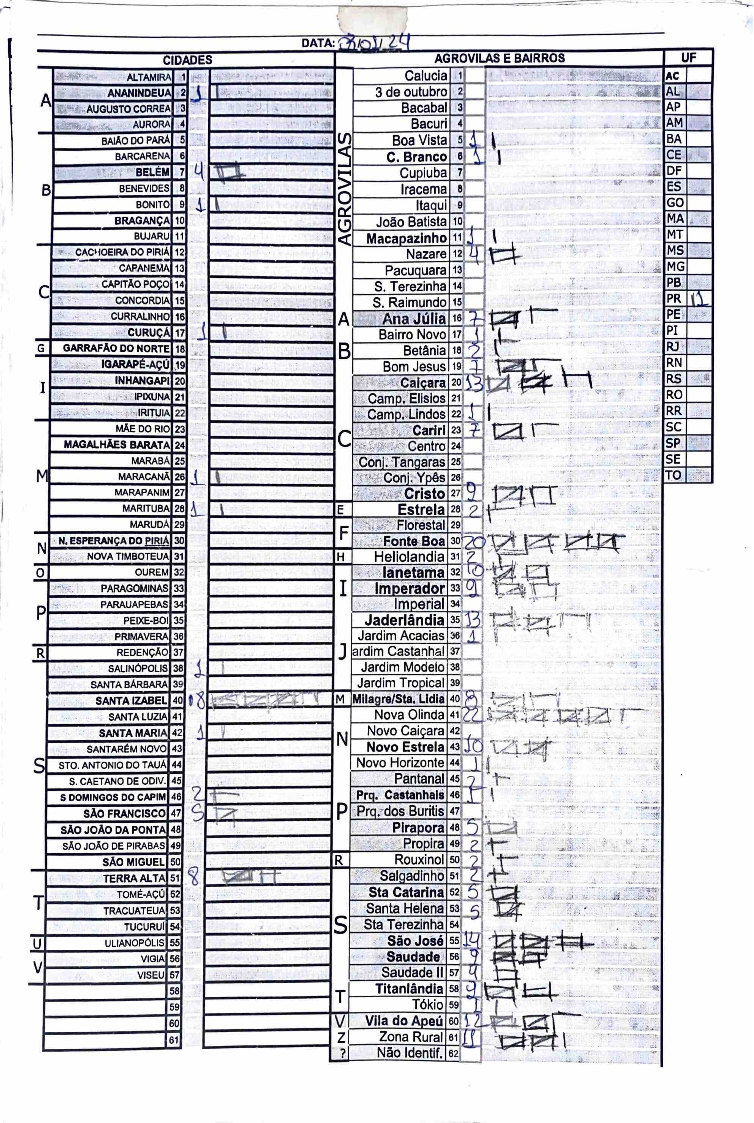 DATA: /01/24
CIDADES
A
ALTAMIRA 1
ANANINDEUA 2 1
AUGUSTO CORREA 3
AURORA 4
B
BAIÃO DO PARÁ 5
BARCARENA 6
BELÉM 7 4
BENEVIDES 8
BONITO 9 1
BRAGANÇA 10
BUJARU 11
C
CACHOEIRA DO PIRIÁ 12
CAPANEMA 13
CAPITÃO POÇO 14
CONCORDIA 15
CURRALINHO 16
CURUÇÁ 17 1
G
GARRAFÃO DO NORTE 18
I
IGARAPÉ-AÇÚ 19
INHANGAPI 20
IPIXUNA 21
IRITUIA 22
M
MÃE DO RIO 23
MAGALHÃES BARATA 24
MARABÁ 25
MARACANÃ 26 1
MARAPANIM 27
MARITUBA 28 1
MARUDÁ 29
N
N. ESPERANÇA DO PIRIÁ 30
NOVA TIMBOTEUA 31
O
OUREM 32
P
PARAGOMINAS 33
PARAUAPEBAS 34
PEIXE-BOI 35
PRIMAVERA 36
R
REDENÇÃO 37
S
SALINÓPOLIS 38 1
SANTA BÁRBARA 39
SANTA IZABEL 40 18
SANTA LUZIA 41
SANTA MARIA 42 1
SANTARÉM NOVO 43
STO. ANTONIO DO TAUÁ 44
S. CAETANO DE ODIV. 45
S DOMINGOS DO CAPIM 46 2
SÃO FRANCISCO 47 5
SÃO JOÃO DA PONTA 48
SÃO JOÃO DE PIRABAS 49
SÃO MIGUEL 50
T
TERRA ALTA 51 8
TOMÉ-AÇÚ 52
TRACUATEUA 53
TUCURUÍ 54
U
ULIANÓPOLIS 55
V
VIGIA 56
VISEU 57
58
59
60
61
AGROVILAS E BAIRROS
AGROVILAS
Calucia 1
3 de outubro 2
Bacabal 3
Bacuri 4
Boa Vista 5 1
C. Branco 6 1
Cupiuba 7
Iracema 8
Itaqui 9
João Batista 10
Macapazinho 11 1
Nazare 12 4
Pacuquara 13
S. Terezinha 14
S. Raimundo 15
A
Ana Júlia 16 7
B
Bairro Novo 17 1
Betânia 18 2
Bom Jesus 19 7
C
Caiçara 20 13
Camp. Elisios 21
Camp. Lindos 22 1
Cariri 23 7
Centro 24
Conj. Tangaras 25
Conj. Ypês 26
Cristo 27 9
E
Estrela 28 2
F
Florestal 29
Fonte Boa 30 20
H
Heliolandia 31 2
I
Ianetama 32 10
Imperador 33 9
Imperial 34
J
Jaderlândia 35 13
Jardim Acacias 36 1
Jardim Castanhal 37
Jardim Modelo 38
Jardim Tropical 39
M
Milagre/Sta. Lidia 40
N
Nova Olinda 41 22
Novo Caiçara 42
Novo Estrela 43 10
Novo Horizonte 44 1
P
Pantanal 45 2
Prq. Castanhais 46 1
Prq. dos Buritis 47
Pirapora 48 5
Propira 49 2
R
Rouxinol 50 2
S
Salgadinho 51 2
Sta Catarina 52 5
Santa Helena 53 5
Sta Terezinha 54
São José 55 14
Saudade 56 9
Saudade II 57 4
T
Titanlândia 58 9
Tókio 59 1
V
Vila do Apeú 60 12
Z
Zona Rural 61 11
?
Não Identif. 62
UF
AC
AL
AP
AM
BA
CE
DF
ES
GO
MA
MT
MS
MG
PB
PR 11
PE
PI
RJ
RN
RS
RO
RR
SC
SP
SE
TO